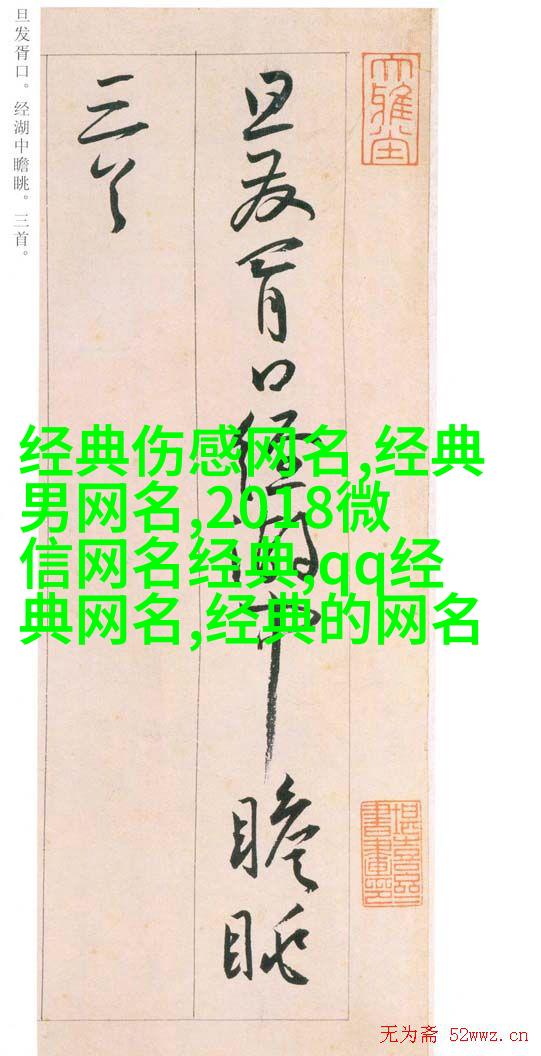 旦发胥口。经湖中瞻眺。三首。
旦发胥口经湖中瞻眺
三首
大雅堂
经典伤感网名,经典
男网名,2018微
信网名经典,qq经
典网名,经典的网名
无为斋 52wwz.cn